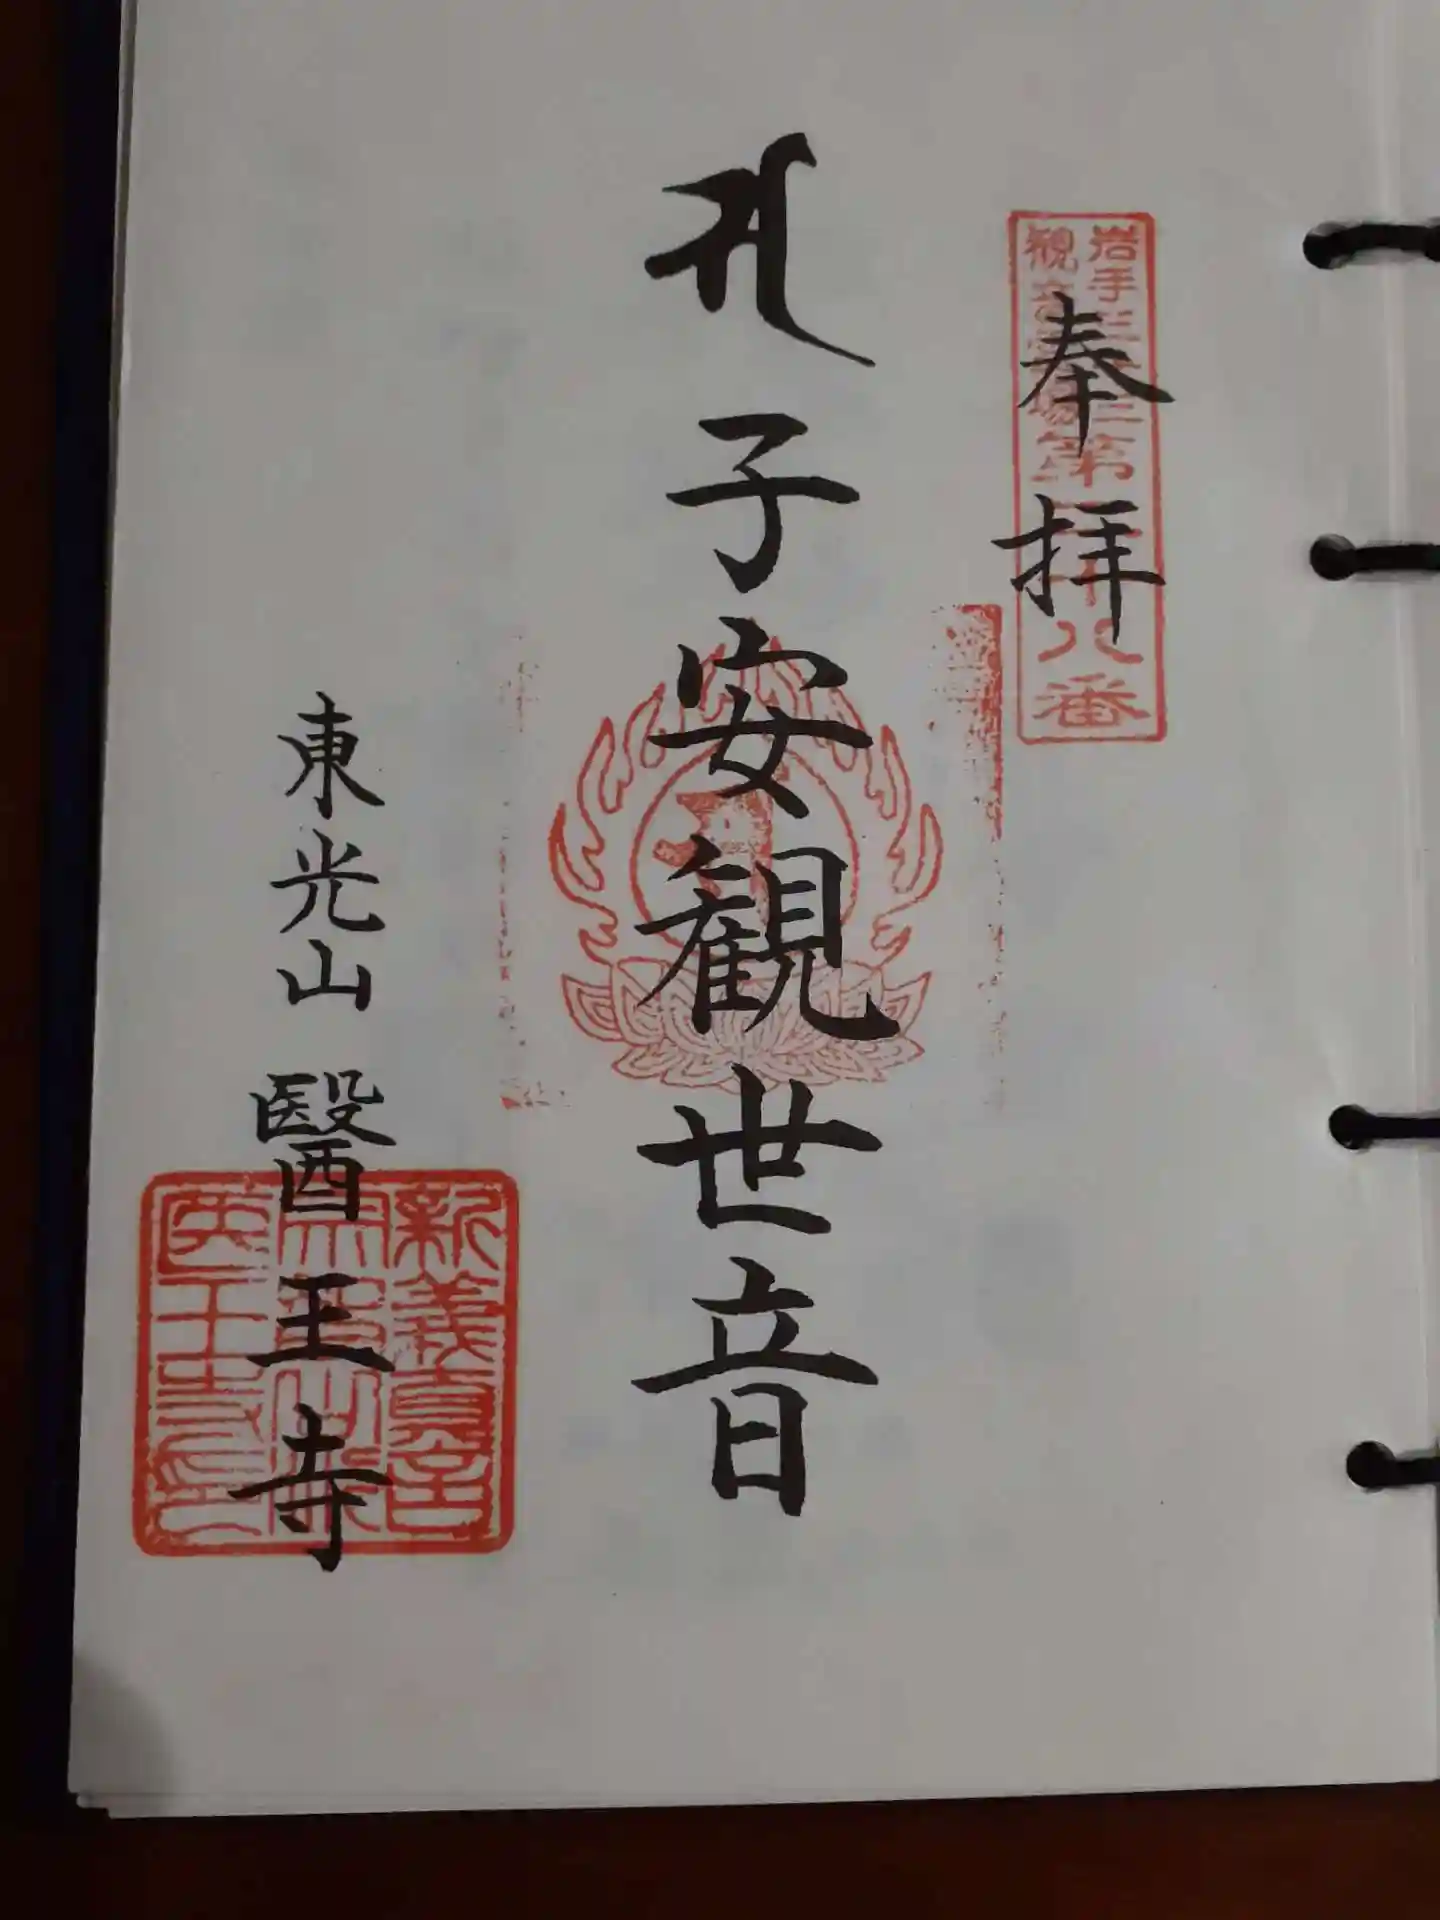 奉拝
岩手三十三
観音霊場
第 八番
स
子安観世音
東光山 醫王寺
新義真言
宗智山派
医王寺印